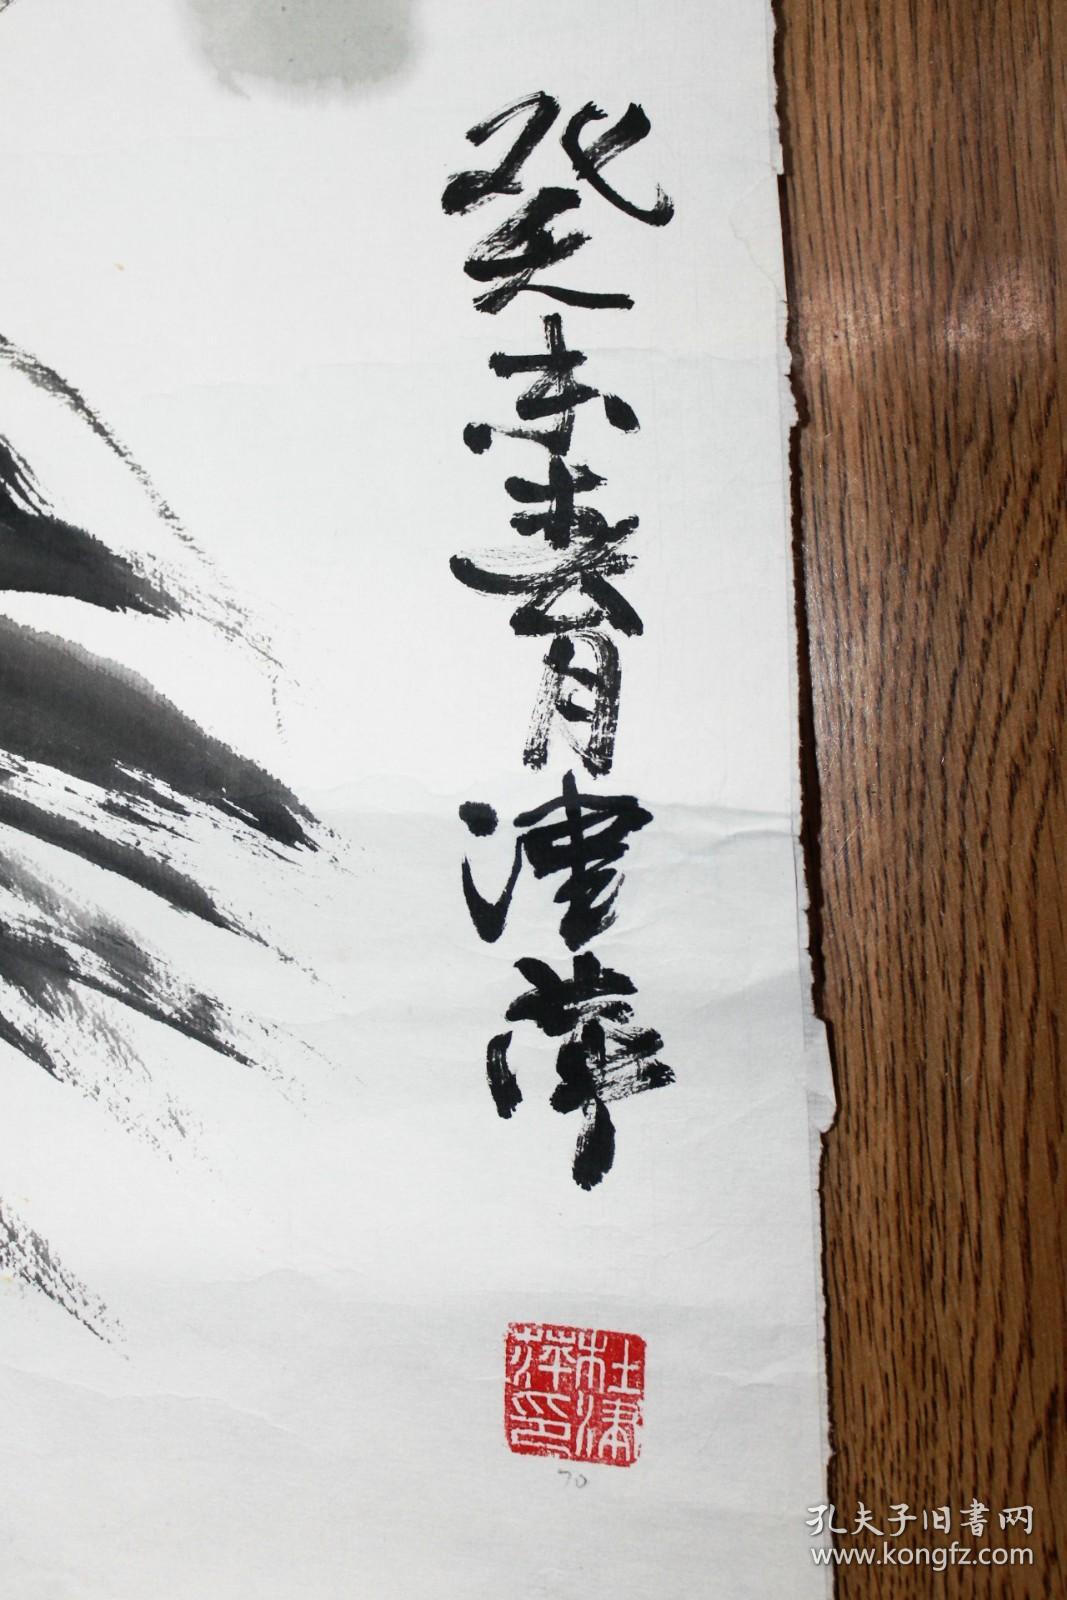 癸未春月津萍
杜津
萍印
70
孔夫子旧書网
www.kongfz.com